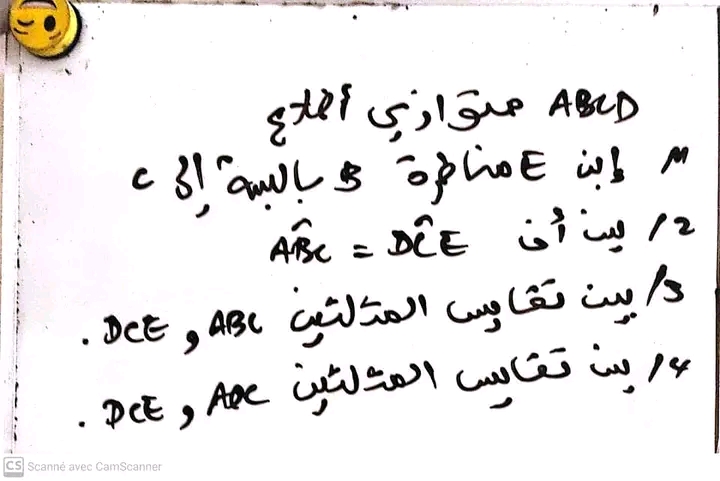 ABCD متوازي أضلاع
1/ إبن E مناظرة B بالنسبة إلى C
2/ بين أن AB̂C = DĈE
3/ بين تقايس المثلثين ABC و DCE .
4/ بين تقايس المثلثين ADC و DCE .
CS Scanné avec CamScanner